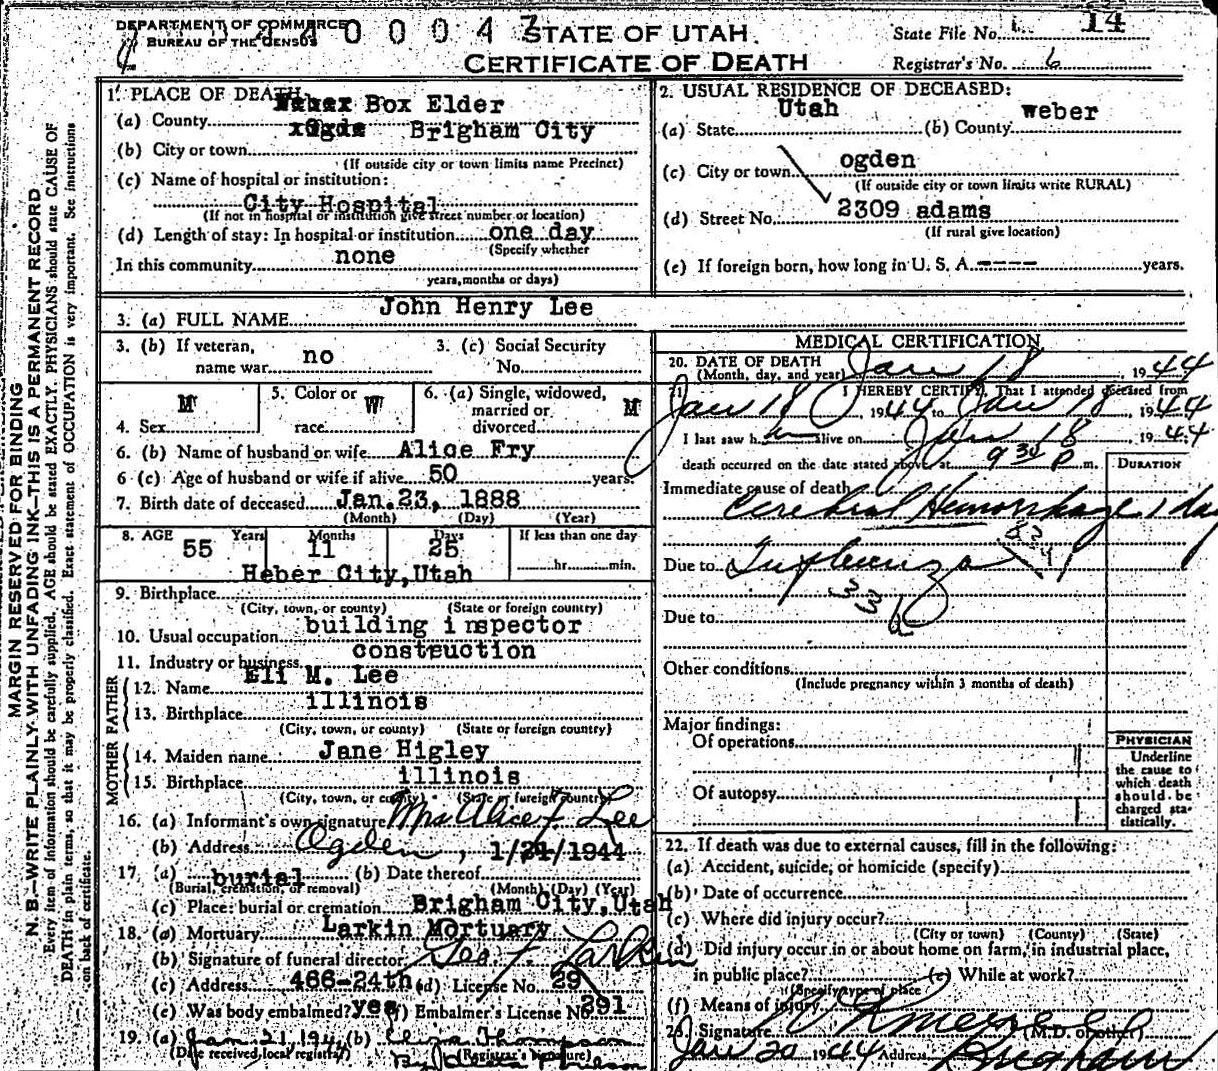 DEPARTMENT OF COMMERCE
BUREAU OF THE CENSUS
STATE OF UTAH
CERTIFICATE OF DEATH
State File No. 14
Registrar's No. 6
MARGIN RESERVED FOR BINDING
N. B.—WRITE PLAINLY WITH UNFADING INK—THIS IS A PERMANENT RECORD
Every item of information should be carefully supplied. AGE should be stated EXACTLY. PHYSICIANS should state CAUSE OF
DEATH in plain terms, so that it may be properly classified. Exact statement of OCCUPATION is very important. See instructions
on back of certificate.
1. PLACE OF DEATH
(a) County Box Elder
(b) City or town Brigham City
(If outside city or town limits name Precinct)
(c) Name of hospital or institution:
City Hospital
(If not in hospital or institution give street number or location)
(d) Length of stay: In hospital or institution one day
(Specify whether
In this community none
years, months or days)
2. USUAL RESIDENCE OF DECEASED:
(a) State Utah (b) County weber
(c) City or town ogden
(If outside city or town limits write RURAL)
(d) Street No. 2309 adams
(If rural give location)
(e) If foreign born, how long in U. S. A. ---- years.
3. (a) FULL NAME John Henry Lee
3. (b) If veteran, name war no
3. (c) Social Security No.
4. Sex M
5. Color or race W
6. (a) Single, widowed, married or divorced M
6. (b) Name of husband or wife Alice Fry
6 (c) Age of husband or wife if alive 50 years
7. Birth date of deceased Jan.23, 1888
(Month) (Day) (Year)
8. AGE 55 Years 11 Months 25 Days If less than one day
hr. min.
9. Birthplace Heber City, Utah
(City, town, or county) (State or foreign country)
10. Usual occupation building inspector
11. Industry or business construction
FATHER
12. Name Eli M. Lee
13. Birthplace illinois
(City, town, or county) (State or foreign country)
MOTHER
14. Maiden name Jane Higley
15. Birthplace illinois
(City, town, or county) (State or foreign country)
16. (a) Informant's own signature Mrs Alice F. Lee
(b) Address Ogden
17. (a) burial (b) Date thereof 1/21/1944
(Burial, cremation, or removal) (Month) (Day) (Year)
(c) Place: burial or cremation Brigham City, Utah
18. (a) Mortuary Larkin Mortuary
(b) Signature of funeral director Geo F. Larkin
(c) Address 466-24th (d) License No. 29
(e) Was body embalmed? yes (f) Embalmer's License No. 291
19. (a) Jan. 21, 1944 (b) Eliza Thompson
(Date received local registrar) (Registrar's signature)
MEDICAL CERTIFICATION
20. DATE OF DEATH
(Month, day, and year) Jan 18, 1944
I HEREBY CERTIFY, That I attended deceased from
Jan 18, 1944 to Jan 18, 1944
I last saw h alive on Jan 18, 1944
death occurred on the date stated above at 9 30 P m.
DURATION
Immediate cause of death
Cerebral Hemorrhage 1 day
Due to Influenza
33b
Due to
Other conditions
(Include pregnancy within 3 months of death)
Major findings:
Of operations
Of autopsy
PHYSICIAN
Underline
the cause to
which death
should be
charged sta-
tistically.
22. If death was due to external causes, fill in the following:
(a) Accident, suicide, or homicide (specify)
(b) Date of occurrence
(c) Where did injury occur?
(City or town) (County) (State)
(d) Did injury occur in or about home on farm, in industrial place,
in public place? (e) While at work?
(Specify type of place)
(f) Means of injury
23. Signature (M.D. or other)
Jan 20 1944 Address Brigham